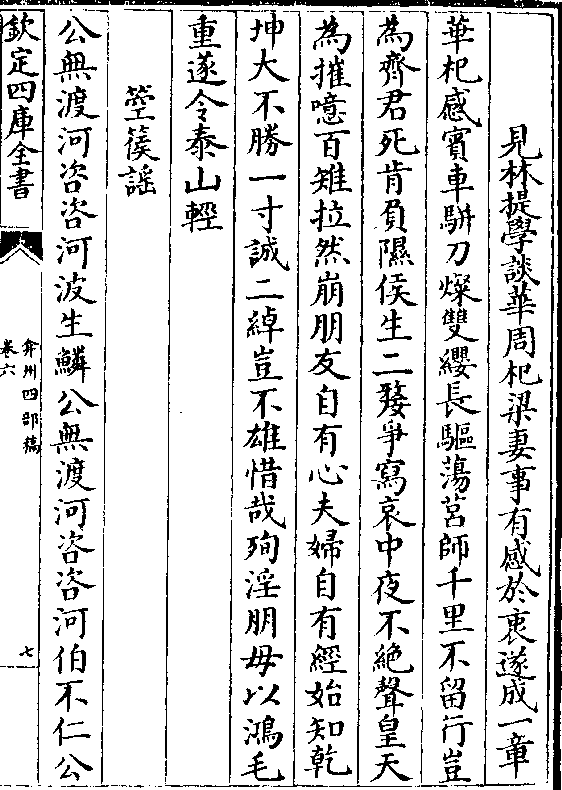 見林提學談華周杞梁妻事有感於衷遂成一章
華杞感賓車駢刀燦雙纓長驅蕩莒師千里不留行豈
為齊君死肯負隰侯生二嫠爭寫哀中夜不絶聲皇天
為摧噫百雉拉然崩朋友自有心夫婦自有經始知乾
坤大不勝一寸誠二綽豈不雄惜哉殉淫朋毋以鴻毛
重遂令泰山輕
箜篌謡
公無渡河咨咨河波生鱗公無渡河咨咨河伯不仁公
欽定四庫全書
弇州四部稿
卷六
七